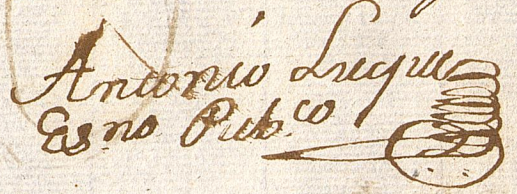 Antonio Luque
Esno Pub.co